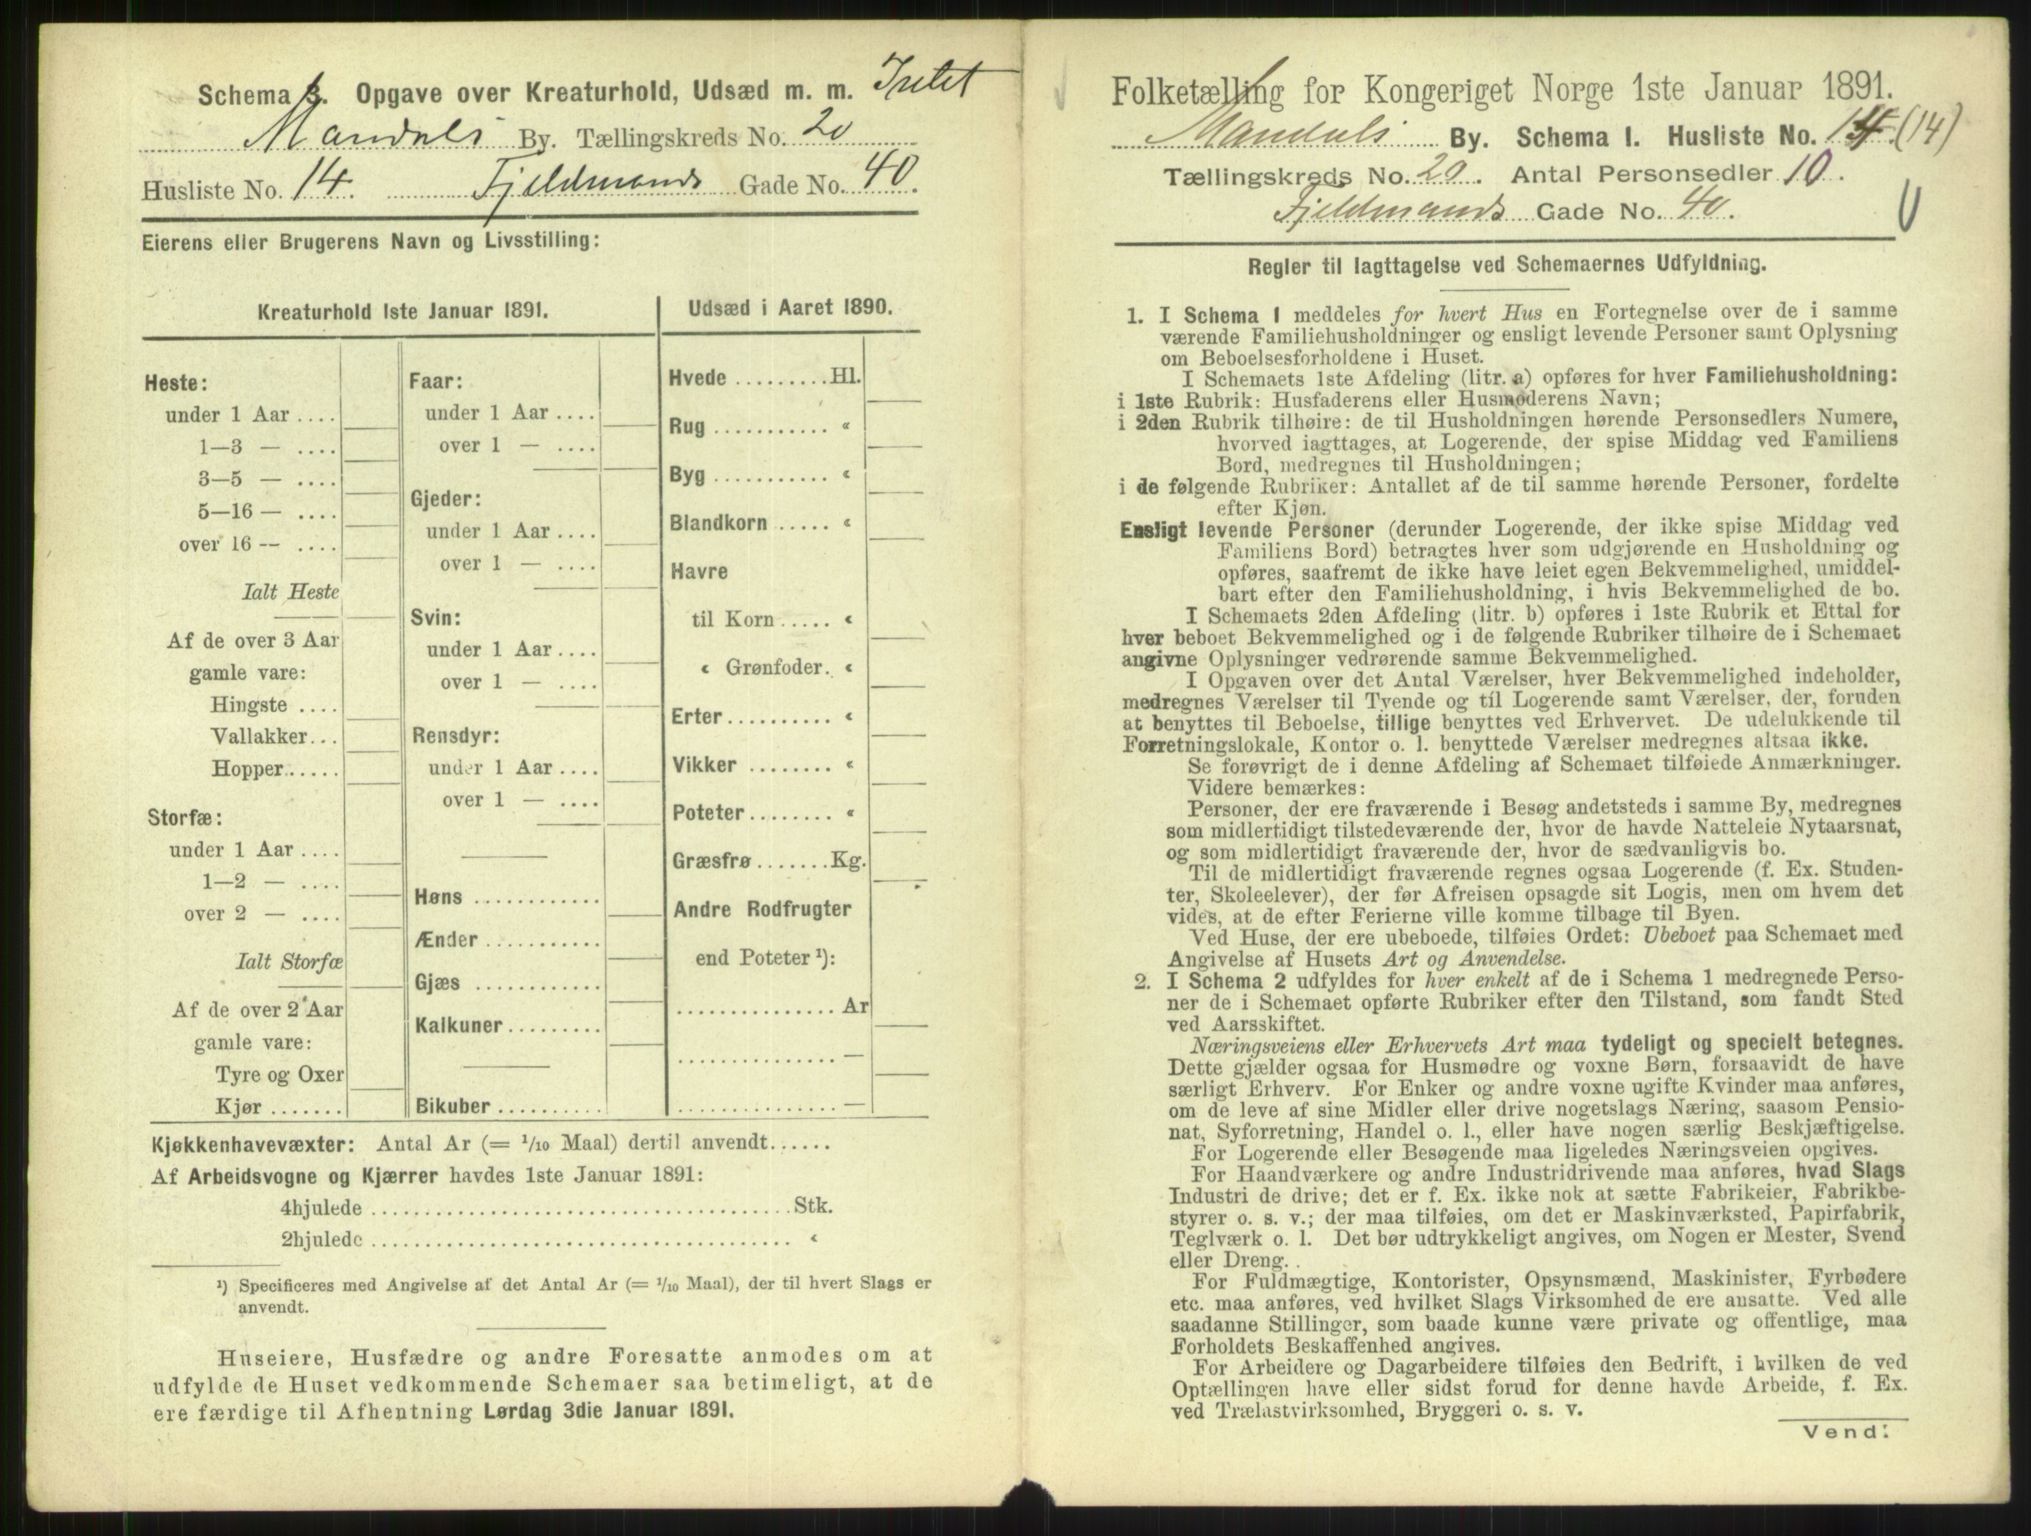 Schema 3. Opgave over Kreaturhold, Udsæd m. m. Intet
Mandals By. Tællingskreds No. 20
Husliste No. 14. Fjeldmands Gade No. 40.
Eierens eller Brugerens Navn og Livsstilling:
Kreaturhold 1ste Januar 1891.
Heste:
under 1 Aar ....
1—3 — ....
3—5 — ....
5—16 — ....
over 16 — ....
Ialt Heste
Af de over 3 Aar
gamle vare:
Hingste ....
Vallakker...
Hopper.....
Storfæ:
under 1 Aar ....
1—2 — ....
over 2 — ....
Ialt Storfæ
Af de over 2 Aar
gamle vare:
Tyre og Oxer
Kjør .......
Faar:
under 1 Aar ....
over 1 — ....
Gjeder:
under 1 Aar ....
over 1 — ....
Svin:
under 1 Aar ....
over 1 — ....
Rensdyr:
under 1 Aar ....
over 1 — ....
Høns ............
Ænder ...........
Gjæs ............
Kalkuner.........
Bikuber ..........
Udsæd i Aaret 1890.
Hvede .........Hl.
Rug ........... «
Byg ........... «
Blandkorn ..... «
Havre
til Korn ..... «
« Grønfoder. «
Erter......... «
Vikker ........ «
Poteter........ «
Græsfrø .......Kg.
Andre Rodfrugter
end Poteter ¹):
............... Ar
............... —
............... —
Kjøkkenhavevæxter: Antal Ar (= 1/10 Maal) dertil anvendt......
Af Arbeidsvogne og Kjærrer havdes 1ste Januar 1891:
4hjulede ........................................Stk.
2hjulede ........................................ «
¹) Specificeres med Angivelse af det Antal Ar (= 1/10 Maal), der til hvert Slags er
anvendt.
Huseiere, Husfædre og andre Foresatte anmodes om at
udfylde de Huset vedkommende Schemaer saa betimeligt, at de
ere færdige til Afhentning Lørdag 3die Januar 1891.
Folketælling for Kongeriget Norge 1ste Januar 1891.
Mandals By. Schema I. Husliste No. 14 (14)
Tællingskreds No. 20. Antal Personsedler 10.
Fjeldmands Gade No. 40.
Regler til Iagttagelse ved Schemaernes Udfyldning.
1. I Schema 1 meddeles for hvert Hus en Fortegnelse over de i samme
værende Familiehusholdninger og ensligt levende Personer samt Oplysning
om Beboelsesforholdene i Huset.
I Schemaets 1ste Afdeling (litr. a) opføres for hver Familiehusholdning:
i 1ste Rubrik: Husfaderens eller Husmoderens Navn;
i 2den Rubrik tilhøire: de til Husholdningen hørende Personsedlers Numere,
hvorved iagttages, at Logerende, der spise Middag ved Familiens
Bord, medregnes til Husholdningen;
i de følgende Rubriker: Antallet af de til samme hørende Personer, fordelte
efter Kjøn.
Ensligt levende Personer (derunder Logerende, der ikke spise Middag ved
Familiens Bord) betragtes hver som udgjørende en Husholdning og
opføres, saafremt de ikke have leiet egen Bekvemmelighed, umiddel-
bart efter den Familiehusholdning, i hvis Bekvemmelighed de bo.
I Schemaets 2den Afdeling (litr. b) opføres i 1ste Rubrik et Ettal for
hver beboet Bekvemmelighed og i de følgende Rubriker tilhøire de i Schemaet
angivne Oplysninger vedrørende samme Bekvemmelighed.
I Opgaven over det Antal Værelser, hver Bekvemmelighed indeholder,
medregnes Værelser til Tyende og til Logerende samt Værelser, der, foruden
at benyttes til Beboelse, tillige benyttes ved Erhvervet. De udelukkende til
Forretningslokale, Kontor o. l. benyttede Værelser medregnes altsaa ikke.
Se forøvrigt de i denne Afdeling af Schemaet tilføiede Anmærkninger.
Videre bemærkes:
Personer, der ere fraværende i Besøg andetsteds i samme By, medregnes
som midlertidigt tilstedeværende der, hvor de havde Natteleie Nytaarsnat,
og som midlertidigt fraværende der, hvor de sædvanligvis bo.
Til de midlertidigt fraværende regnes ogsaa Logerende (f. Ex. Studen-
ter, Skoleelever), der før Afreisen opsagde sit Logis, men om hvem det
vides, at de efter Ferierne ville komme tilbage til Byen.
Ved Huse, der ere ubeboede, tilføies Ordet: Ubeboet paa Schemaet med
Angivelse af Husets Art og Anvendelse.
2. I Schema 2 udfyldes for hver enkelt af de i Schema 1 medregnede Perso-
ner de i Schemaet opførte Rubriker efter den Tilstand, som fandt Sted
ved Aarsskiftet.
Næringsveiens eller Erhvervets Art maa tydeligt og specielt betegnes.
Dette gjælder ogsaa for Husmødre og voxne Børn, forsaavidt de have
særligt Erhverv. For Enker og andre voxne ugifte Kvinder maa anføres,
om de leve af sine Midler eller drive nogetslags Næring, saasom Pensio-
nat, Syforretning, Handel o. l., eller have nogen særlig Beskjæftigelse.
For Logerende eller Besøgende maa ligeledes Næringsveien opgives.
For Haandværkere og andre Industridrivende maa anføres, hvad Slags
Industri de drive; det er f. Ex. ikke nok at sætte Fabrikeier, Fabrikbe-
styrer o. s. v.; der maa tilføies, om det er Maskinværksted, Papirfabrik,
Teglværk o. l. Det bør udtrykkeligt angives, om Nogen er Mester, Svend
eller Dreng.
For Fuldmægtige, Kontorister, Opsynsmænd, Maskinister, Fyrbødere
etc. maa anføres, ved hvilket Slags Virksomhed de ere ansatte. Ved alle
saadanne Stillinger, som baade kunne være private og offentlige, maa
Forholdets Beskaffenhed angives.
For Arbeidere og Dagarbeidere tilføies den Bedrift, i hvilken de ved
Optællingen have eller sidst forud for denne havde Arbeide, f. Ex.
ved Trælastvirksomhed, Bryggeri o. s. v.
Vend!